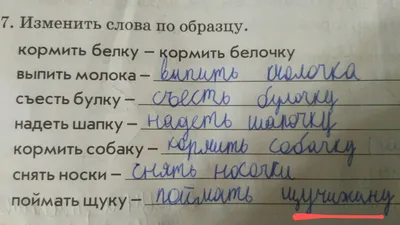 7. Изменить слова по образцу.
кормить белку – кормить белочку
выпить молока – выпить молочка
съесть булку – съесть булочку
надеть шапку – надеть шапочку
кормить собаку – кормить собачку
снять носки – снять носочки
поймать щуку – поймать щучижину